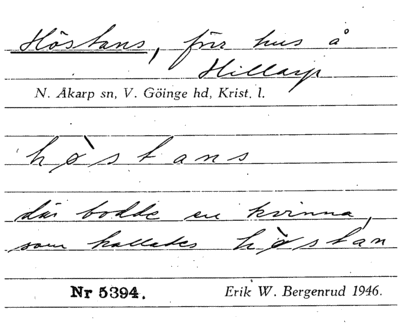 Höstans, förr hus å
Hillarp
N. Åkarp sn, V. Göinge hd, Krist. l.
hø̀stans
där bodde en kvinna,
som kallades hø̀stan
Nr 5394.
Erik W. Bergenrud 1946.